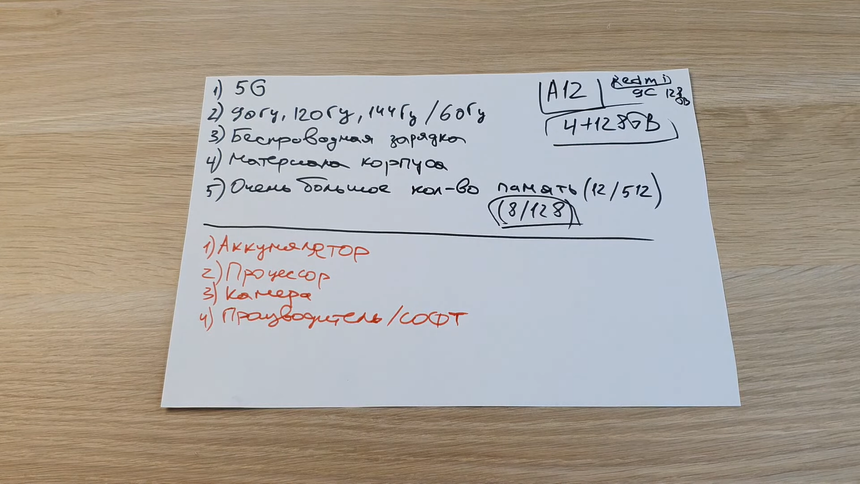 1) 5G
2) 90Гц, 120Гц, 144Гц / 60Гц
3) Беспроводная зарядка
4) Материала корпуса
5) Очень большое кол-во память (12/512)
(8/128)
A12
Redmi
9C 128
GB
4+128GB
1) Аккумулятор
2) Процессор
3) Камера
4) Производитель/СОФТ